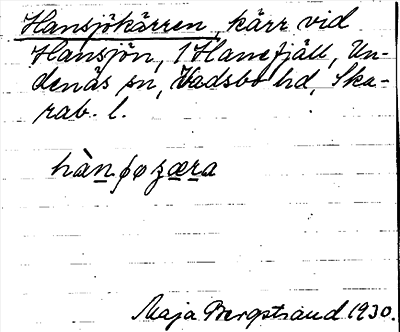 Hansjökärren, kärr vid
Hansjön, 1 Hanefjäll, Un-
denäs sn, Vadsbo hd, Ska-
rab. l.
hànɸøʒæra
Maja Bergstrand 1930.